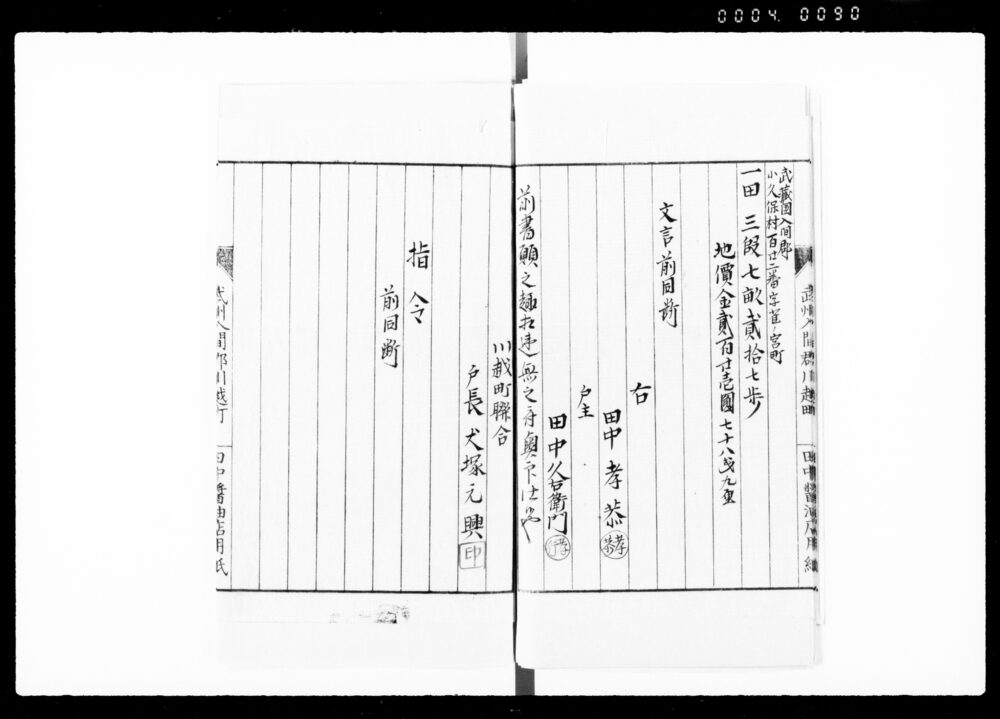 0004. 0090
武蔵国入間郡
小久保村百廿二番字宮町
一田 三段七畝貳拾七歩
地價金貳百廿壱圓七十八戔九厘
文言前同断
右
田中孝恭
戸主
田中久右衛門
前書願之趣相違無之ニ付奥印仕候也
川越町聯合
戸長 犬塚元興 印
指令
前同断
武州入間郡川越町
田中醤油店用紙